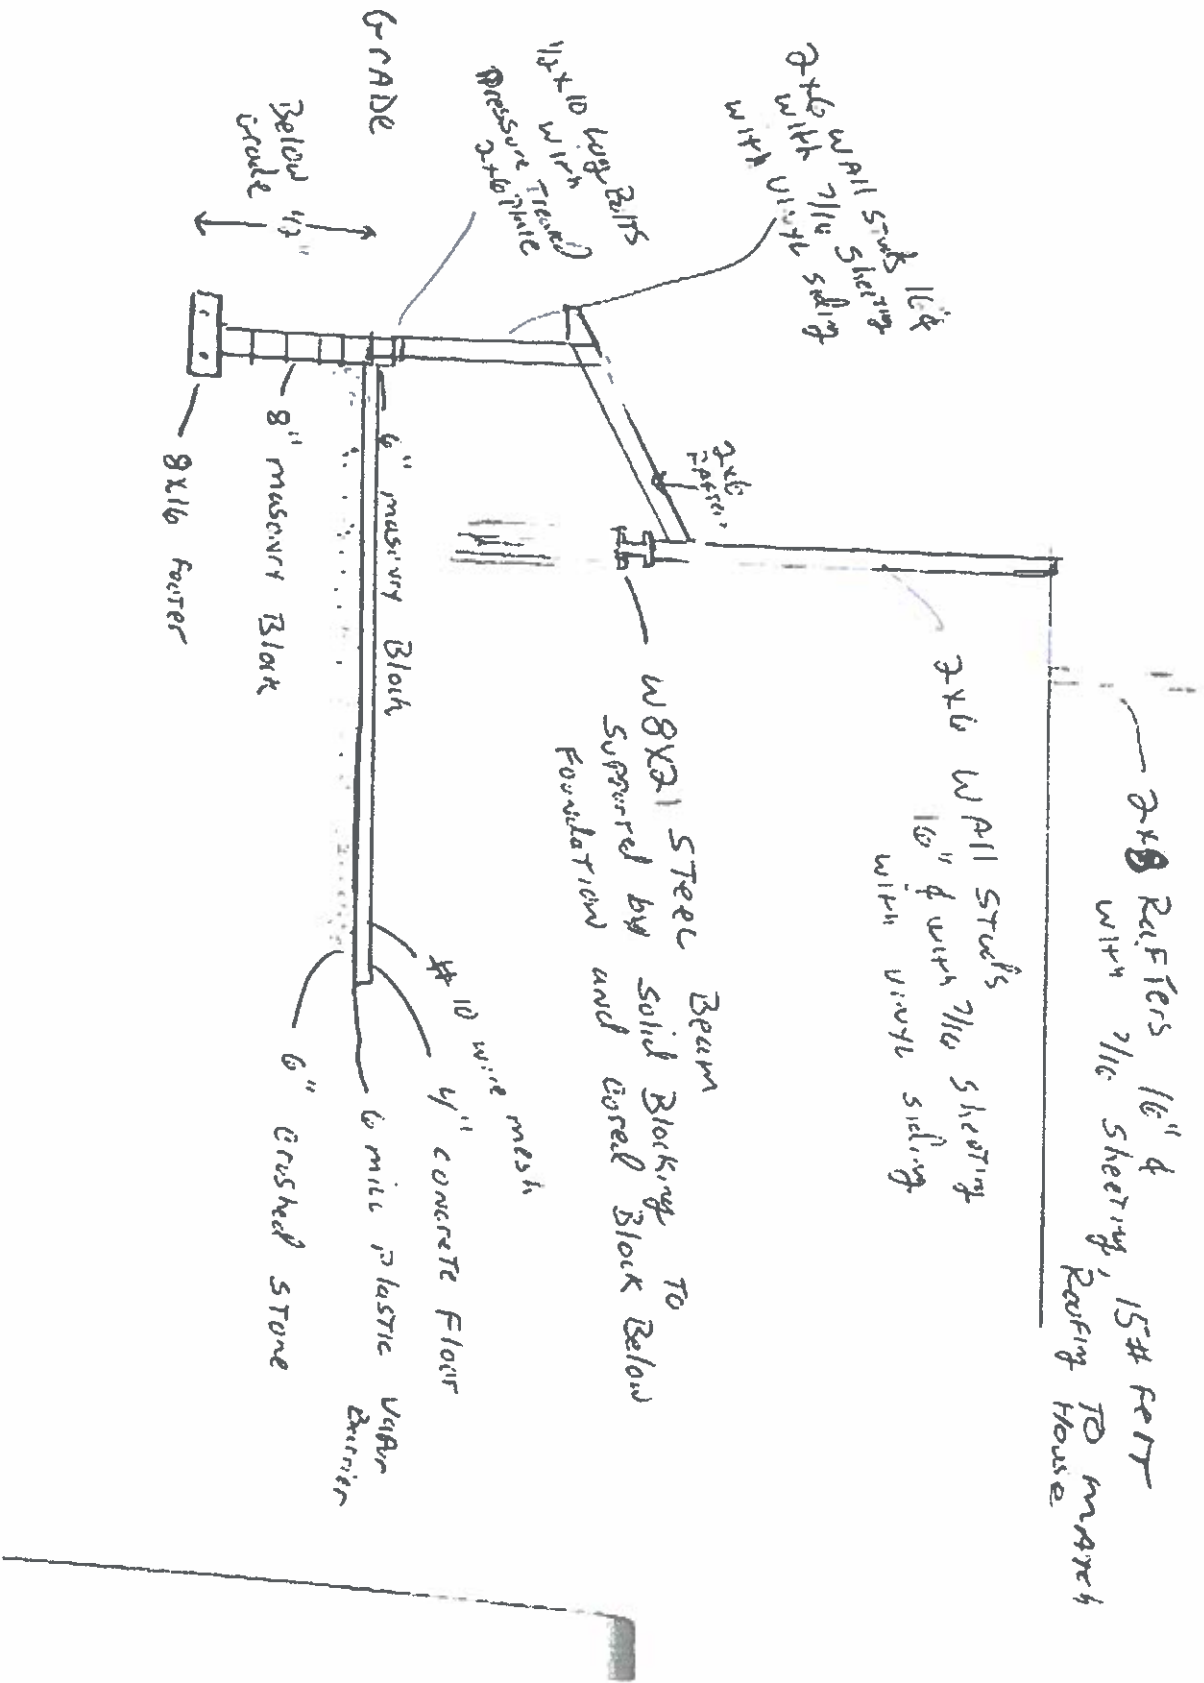 2x8 Rafters 16" ¢
with 7/16 Sheeting, 15# felt
Roofing TO MATCH
House
2x6 WAll STuds
16" ¢ with 7/16 sheeting
with vinyl siding
W8X21 STEEL Beam
Supported by Solid Blocking To
Foundation and Cored Block Below
2x6
Rafter
2x6 WAll Studs 16 ¢
with 7/16 Sheeting
with vinyl siding
1/2 x 10 Lug Bolts
with
Pressure Treated
2x6 Plate
GrADe
Below
Grade
42"
6" masonry Block
8" masonry Block
8X16 Footer
#10 wire mesh
4" concrete Floor
6 mill Plastic Vapor
Barrier
6" Crushed STone